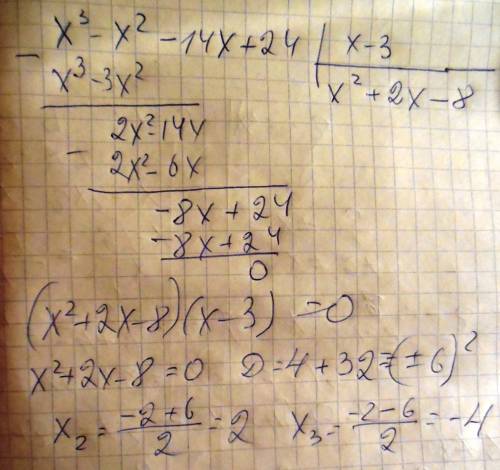 x³ - x² - 14x + 24 | x - 3
- x³ - 3x² | x² + 2x - 8
2x² - 14x
- 2x² - 6x
-8x + 24
-8x + 24
0
(x² + 2x - 8)(x - 3) = 0
x² + 2x - 8 = 0 D = 4 + 32 = (±6)²
x₂ = \frac{-2+6}{2} = 2 x₃ = \frac{-2-6}{2} = -4